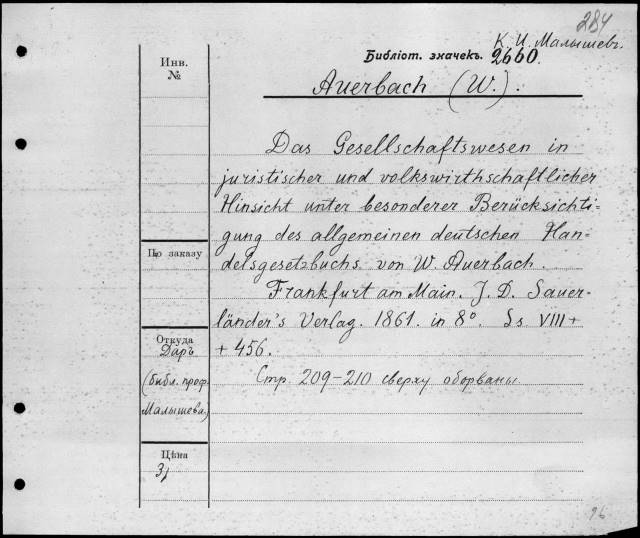 284
К. И. Малышевъ.
Библіот. значекъ. 2660.
Auerbach (W.).
Инв. №
Das Gesellschaftswesen in
juristischer und volkswirthschaftlicher
Hinsicht unter besonderer Berücksichti=
gung des allgemeinen deutschen Han=
delsgesetzbuchs von W. Auerbach.
Frankfurt am Main. J. D. Sauer-
länder's Verlag. 1861. in 8º. Ss. VIII +
+ 456.
Стр. 209-210 сверху оборваны
По заказу
Откуда
Даръ
(библ. проф.
Малышева)
Цѣна
96